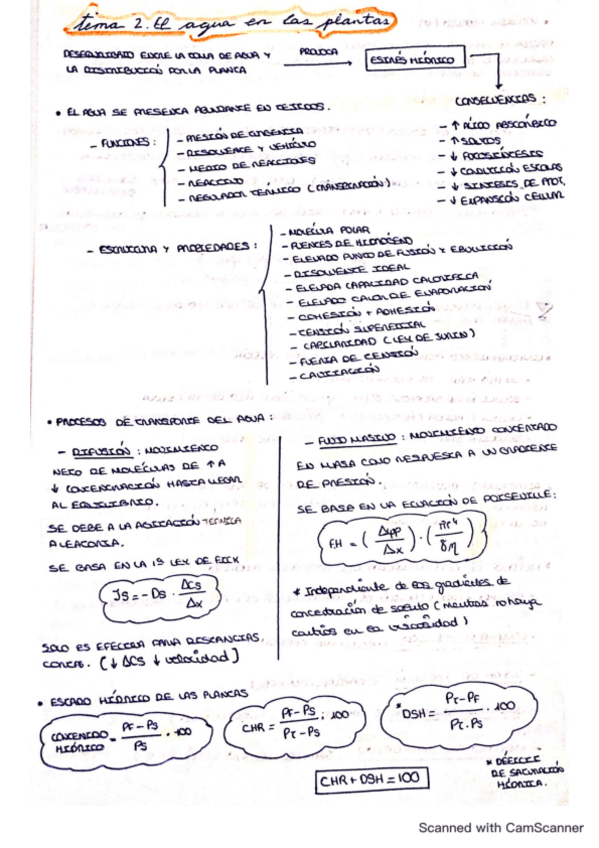 tema 2. El agua en las plantas
DESEQUILIBRIO ENTRE LA TOMA DE AGUA Y
LA DISTRIBUCIÓN POR LA PLANTA
PROVOCA
ESTRÉS HÍDRICO
CONSECUENCIAS :
- ↑ ÁCIDO ABSCÍSICO
- ↑ SOLUTOS
- ↓ FOTOSÍNTESIS
- ↓ CONDUCCIÓN ESTOMAS
- ↓ SÍNTESIS DE PROT.
- ↓ EXPANSIÓN CELULAR
• EL AGUA SE PRESENTA ABUNDANTE EN TEJIDOS.
- FUNCIONES :
- PRESIÓN DE TURGENCIA
- DISOLVENTE Y VEHÍCULO
- MEDIO DE REACCIONES
- REACTIVO
- REGULADOR TÉRMICO (TRANSPIRACIÓN)
- ESTRUCTURA Y PROPIEDADES :
- MOLÉCULA POLAR
- PUENTES DE HIDRÓGENO
- ELEVADO PUNTO DE FUSIÓN Y EBULLICIÓN
- DISOLVENTE IDEAL
- ELEVADA CAPACIDAD CALORÍFICA
- ELEVADO CALOR DE EVAPORACIÓN
- COHESIÓN + ADHESIÓN
- TENSIÓN SUPERFICIAL
- CAPILARIDAD (LEY DE JURIN)
- FUERZA DE TENSIÓN
- CAVITACIÓN
• PROCESOS DE TRANSPORTE DEL AGUA :
- DIFUSIÓN : MOVIMIENTO
NETO DE MOLÉCULAS DE ↑ A
↓ CONCENTRACIÓN HASTA LLEGAR
AL EQUILIBRIO.
SE DEBE A LA AGITACIÓN TÉRMICA
ALEATORIA.
SE BASA EN LA 1ª LEY DE FICK
Js = - Ds · ΔCs / Δx
SOLO ES EFECTIVA PARA DISTANCIAS
CORTAS. [↓ ΔCS ↓ velocidad]
- FLUJO MASIVO : MOVIMIENTO CONCERTADO
EN MASA COMO RESPUESTA A UN GRADIENTE
DE PRESIÓN.
SE BASA EN LA ECUACIÓN DE POISEUILLE:
F.H = (ΔΨP / Δx) · (πr⁴ / 8η)
* Independiente de los gradientes de
concentración de soluto (mientras no haya
cambios en la viscosidad)
• ESTADO HÍDRICO DE LAS PLANTAS
CONTENIDO HÍDRICO = PF - PS / PS · 100
CHR = PF - PS / PT - PS · 100
* DSH = PT - PF / PT - PS · 100
CHR + DSH = 100
* DÉFICIT
DE SATURACIÓN
HÍDRICA.
Scanned with CamScanner